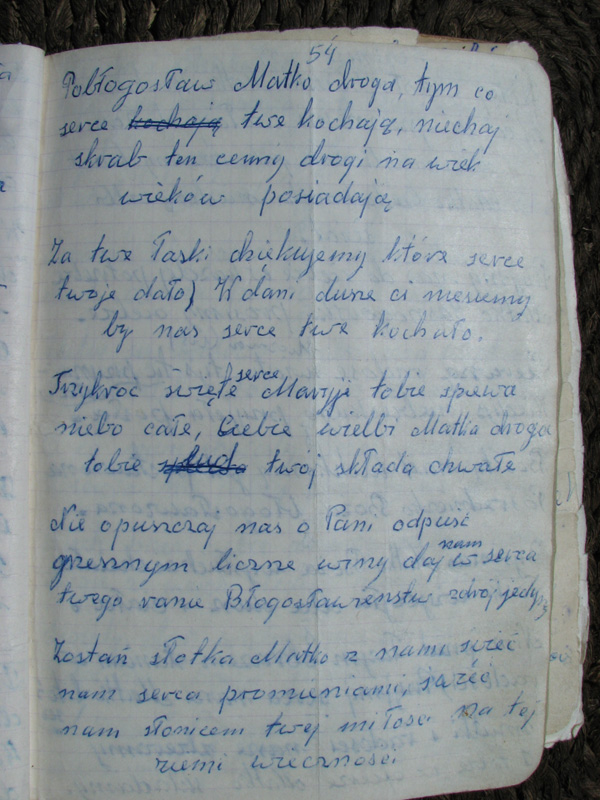 54
Pobłogosław Matko droga, tym co
serce kochają twe kochają, niechaj
skrab ten cenny drogi na wiek
wieków posiadają
Za twe łaski dziekujemy które serce
twoje dało) W dani dusze ci niesiemy
by nas serce twe kochało.
Trzykroc swięte serce Maryji tobie spiewa
niebo całe, Ciebie wielbi Matko droga
tobie twój składa chwałe
Nie opuszczaj nas o Pani odpusć
grzesznym liczne winy daj nam w serca
twego ranie Błogosławieństw zdrój jedy
Zostań słotka Matko z nami swieć
nam serca promieniami, swieć
nam słonicem twej miłosci na tej
ziemi wiecznosci